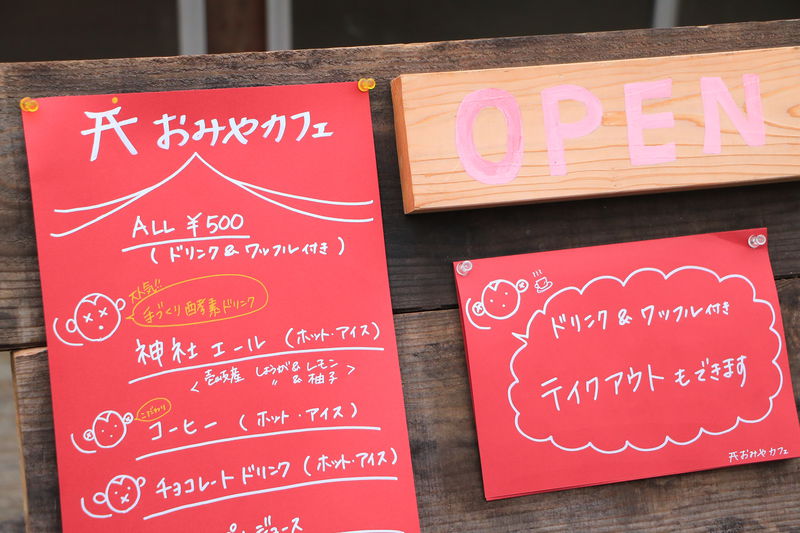 おみやカフェ
ALL ¥500
(ドリンク & ワッフル付き)
大人気!!
手づくり酵素ドリンク
神社エール (ホット・アイス)
<壱岐産 しょうが & レモン
〃 & 柚子>
こだわり
コーヒー (ホット・アイス)
チョコレートドリンク (ホット・アイス)
ジュース
OPEN
ドリンク & ワッフル付き
テイクアウトもできます
おみやカフェ